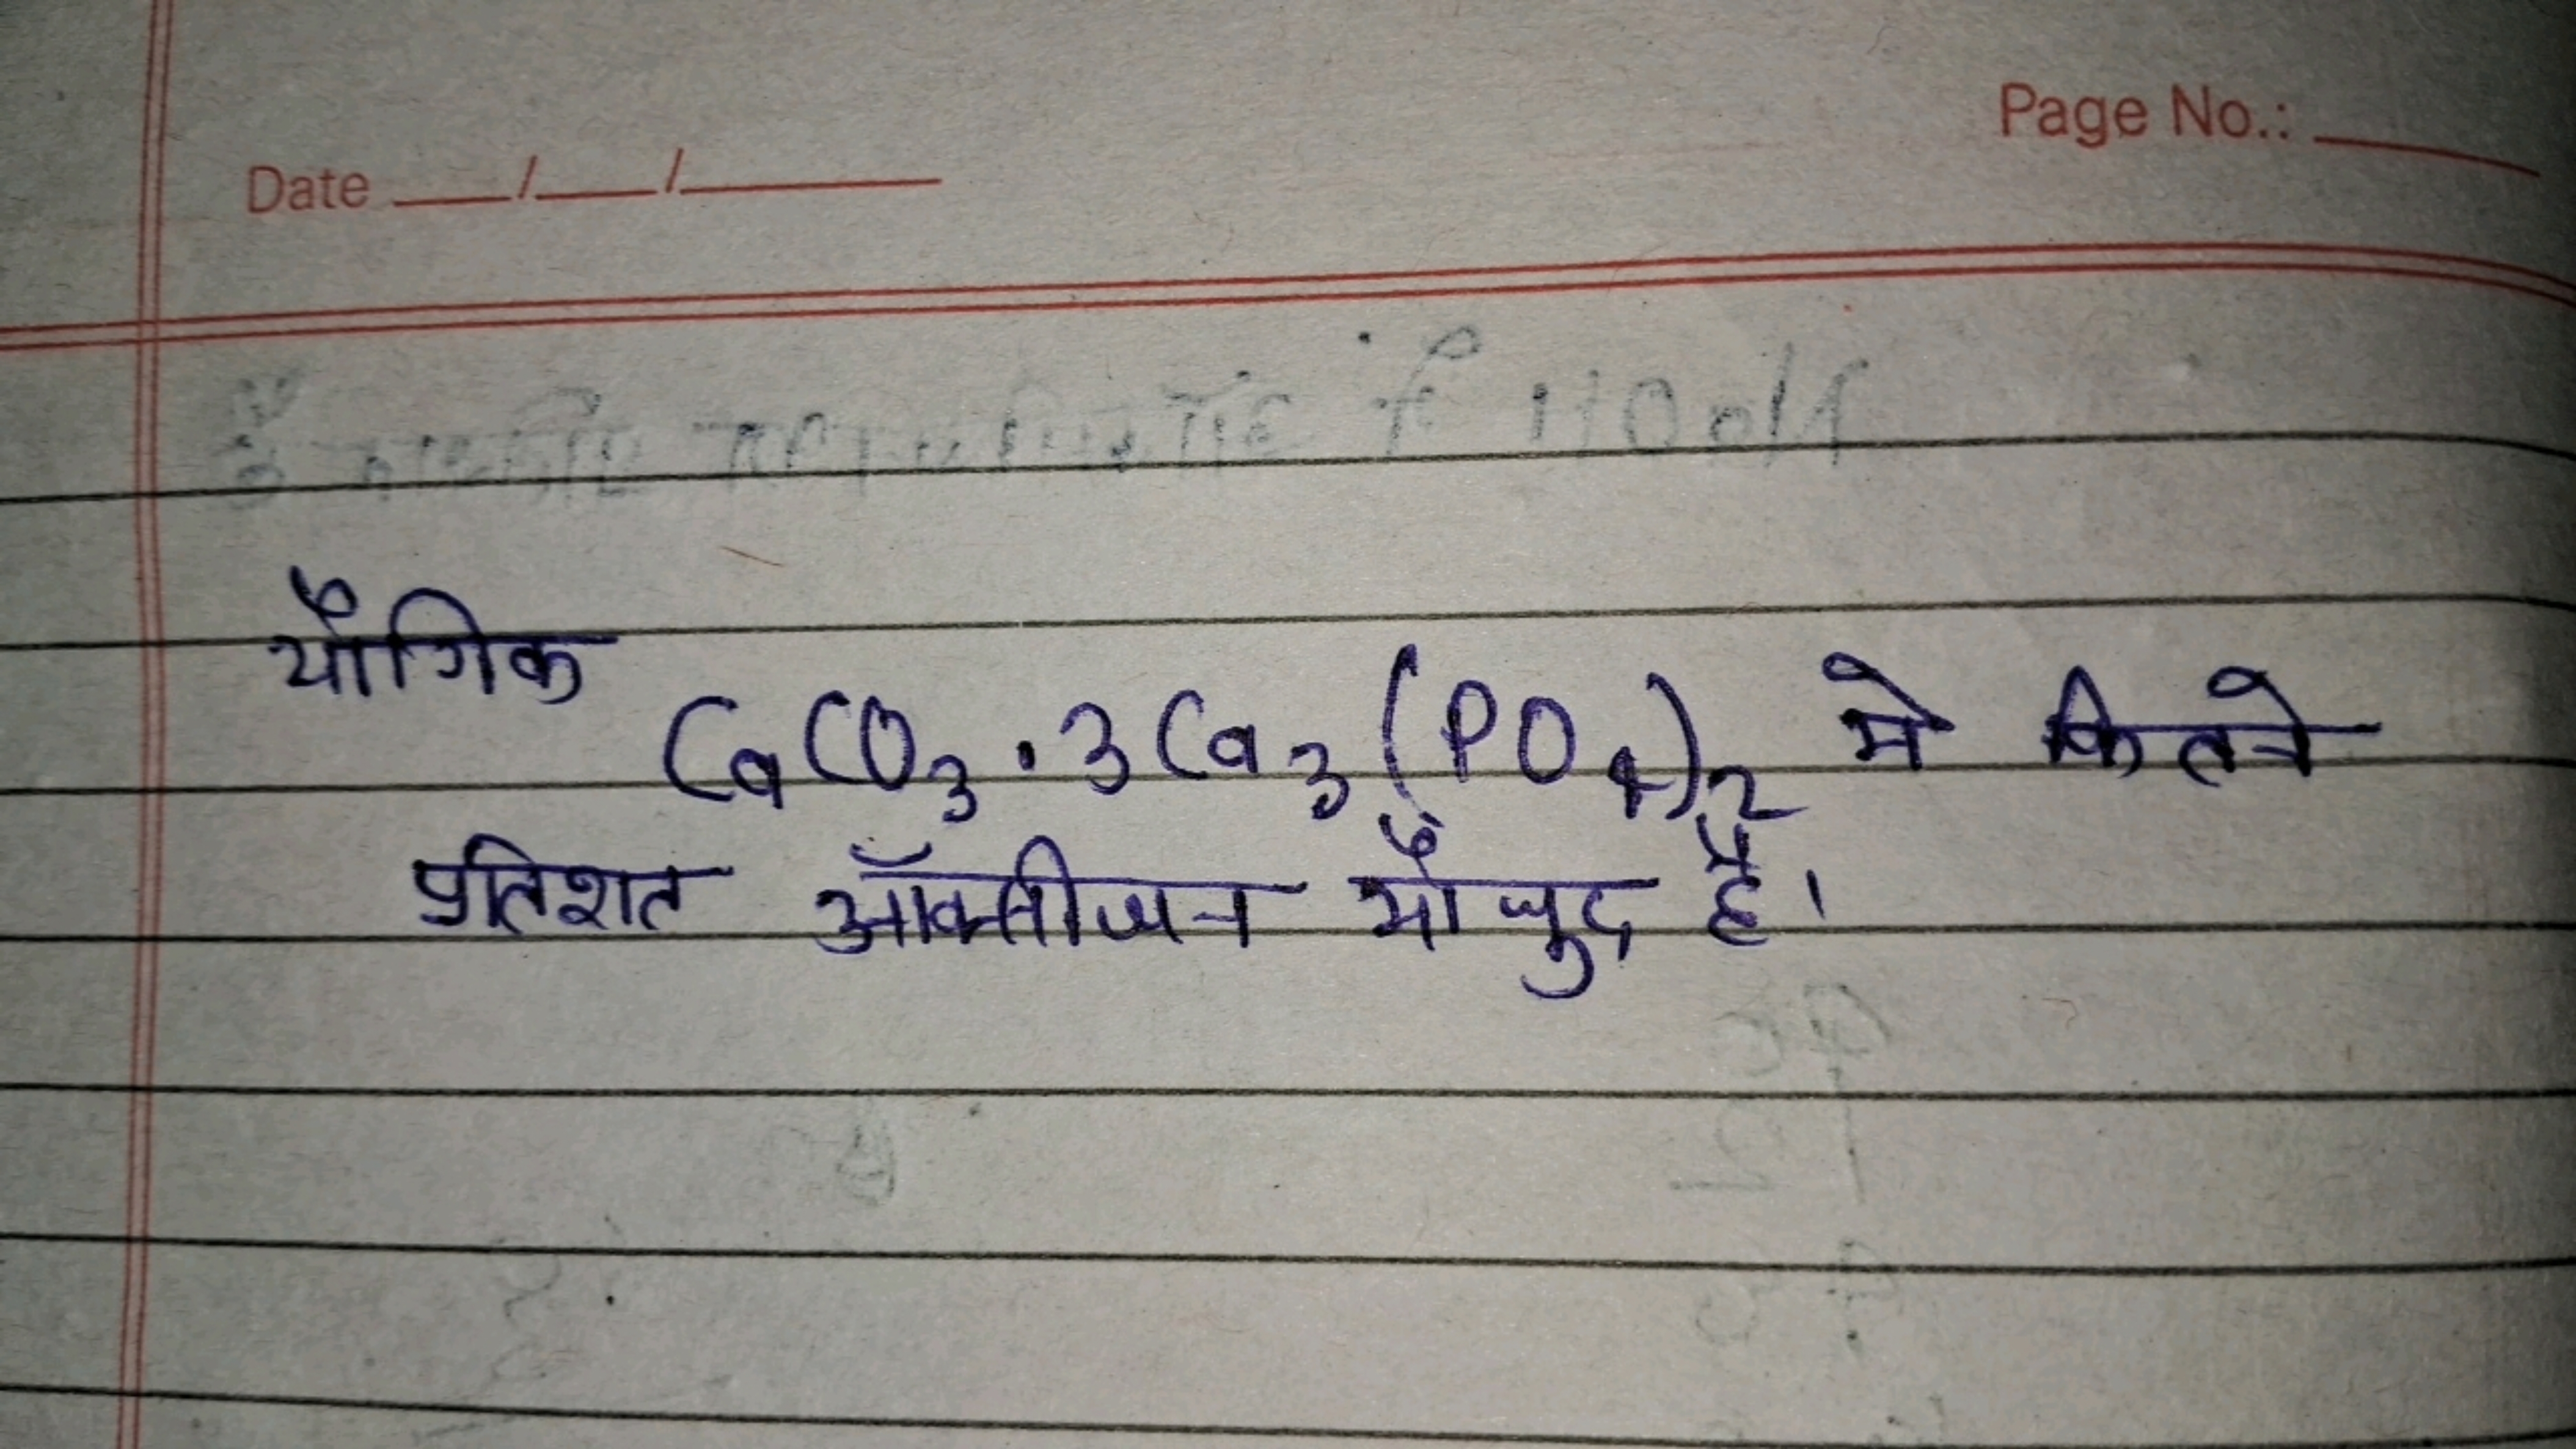 Page No.: ____
Date ___/___/_____
यौगिक CaCO₃ . 3Ca₃(PO₄)₂ मे कितने
प्रतिशत ऑक्सीजन मौजुद है।